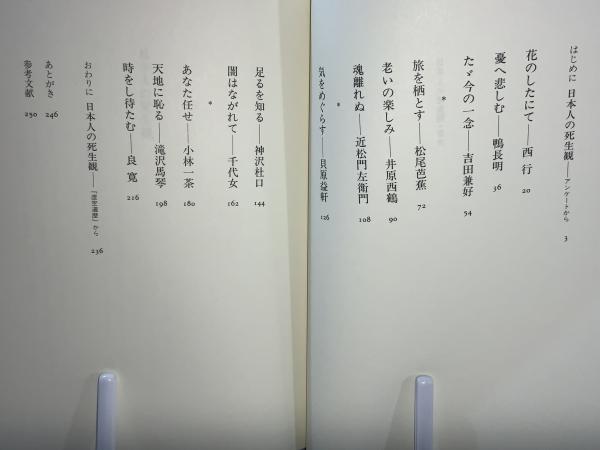 はじめに 日本人の死生観——アンケートから 3
花のしたにて——西 行 20
憂へ悲しむ——鴨長明 36
たゞ今の一念——吉田兼好 54
*
旅を栖とす——松尾芭蕉 72
老いの楽しみ——井原西鶴 90
魂離れぬ——近松門左衛門 108
*
気をめぐらす——貝原益軒 126
足るを知る——神沢杜口 144
闇はながれて——千代女 162
*
あなた任せ——小林一茶 180
天地に恥る——滝沢馬琴 198
時をし待たむ——良 寛 216
おわりに 日本人の死生観——から 236
あとがき 246
参考文献 250